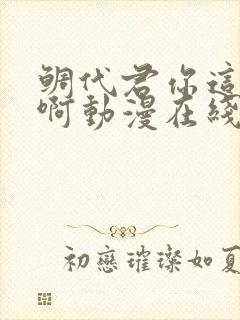 鲷代君你這
啊動漫在綫
初戀璀璨如夏